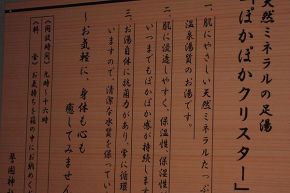 天然ミネラルの足湯
「ぽかぽかクリスター」
一、肌にやさしい天然ミネラルたっぷ
温泉湯質のお湯です。
二、肌に浸透しやすく、保温性、保湿性
いつまでもぽかぽか感が持続します
三、お湯自体に抗菌力があり、常に循環
いますので、清潔な水質を保ってい
～お気軽に、身体も心も
癒してみません
《利用時間》九時~十六時
《料 金》お気持ちを箱の中にお納めく